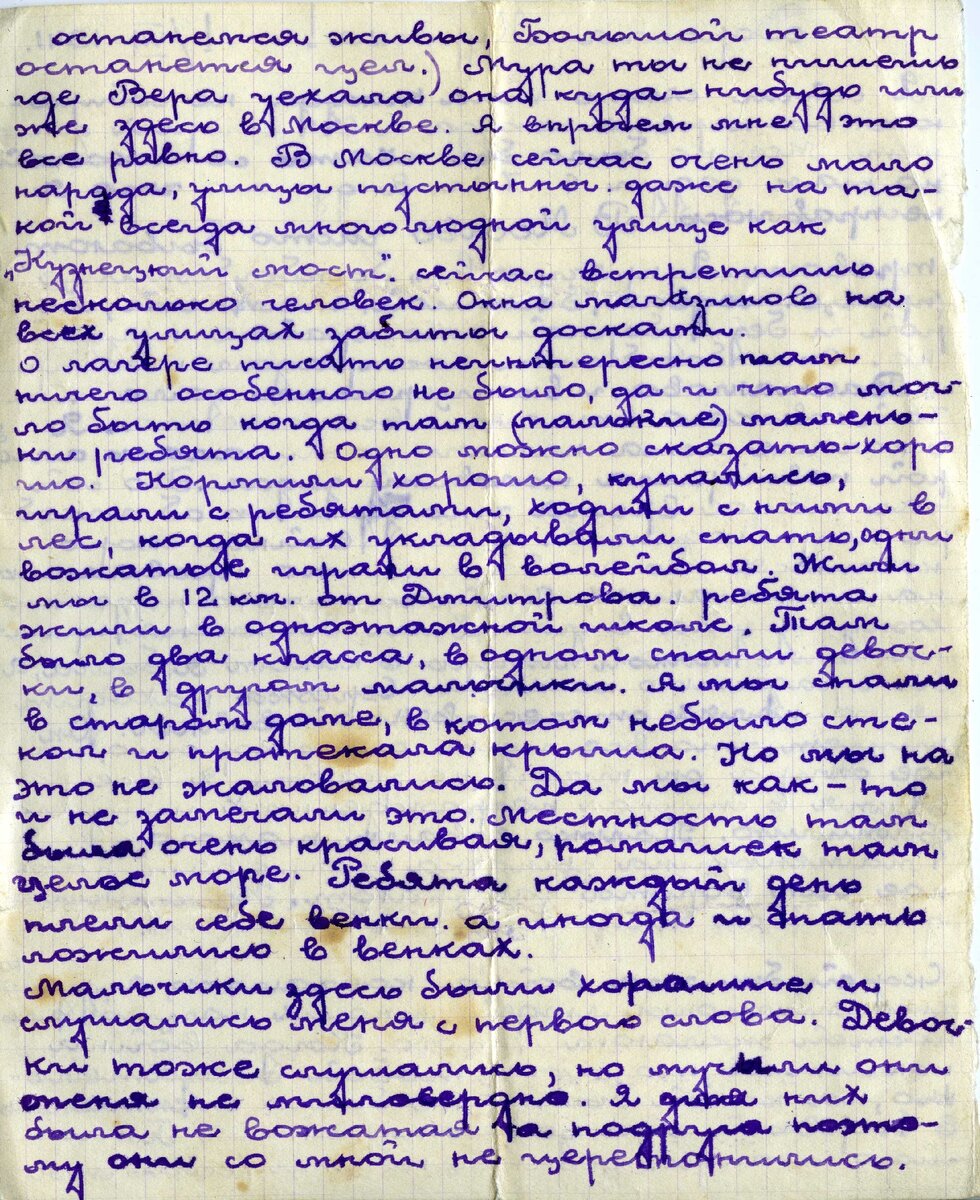 останемся живы, Большой театр
останется цел.) Мура ты не пишешь
где Вера уехала она куда-нибудь или
же здесь в Москве. Я впрочем мне это
все равно. В Москве сейчас очень мало
народа, улицы пустынны. даже на та-
кой всегда многолюдной улице как
„Кузнецкий мост". сейчас встретишь
несколько человек. Окна магазинов на
всех улицах забиты досками.
О лагере писать неинтересно там
ничего особенного не было, да и что мог-
ло быть когда там (малькие) малень-
ки ребята. Одно можно сказать-хоро
шо. Кормили хорошо, купались,
играли с ребятами, ходили с ними в
лес, когда их укладывали спать, одни
вожатые играли в волейбол. Жили
мы в 12 км. от Дмитрова. ребята
жили в одноэтажной школе. Там
было два класса, в одном спали девоч-
ки, в другом мальчики. Я мы спали
в старом доме, в котом небыло сте-
кол и протекала крыша. Но мы на
это не жаловались. Да мы как-то
и не замечали это. Местность там
была очень красивая, ромашек там
целое море. Ребята каждый день
плели себе венки. а иногда и спать
ложились в венках.
Мальчики здесь были хорошие и
слушались меня с первого слова. Девоч-
ки тоже слушались, но мучили они
меня не милосердно. Я для них
была не вожатая а подруга поэто-
му они со мной не церемонились.